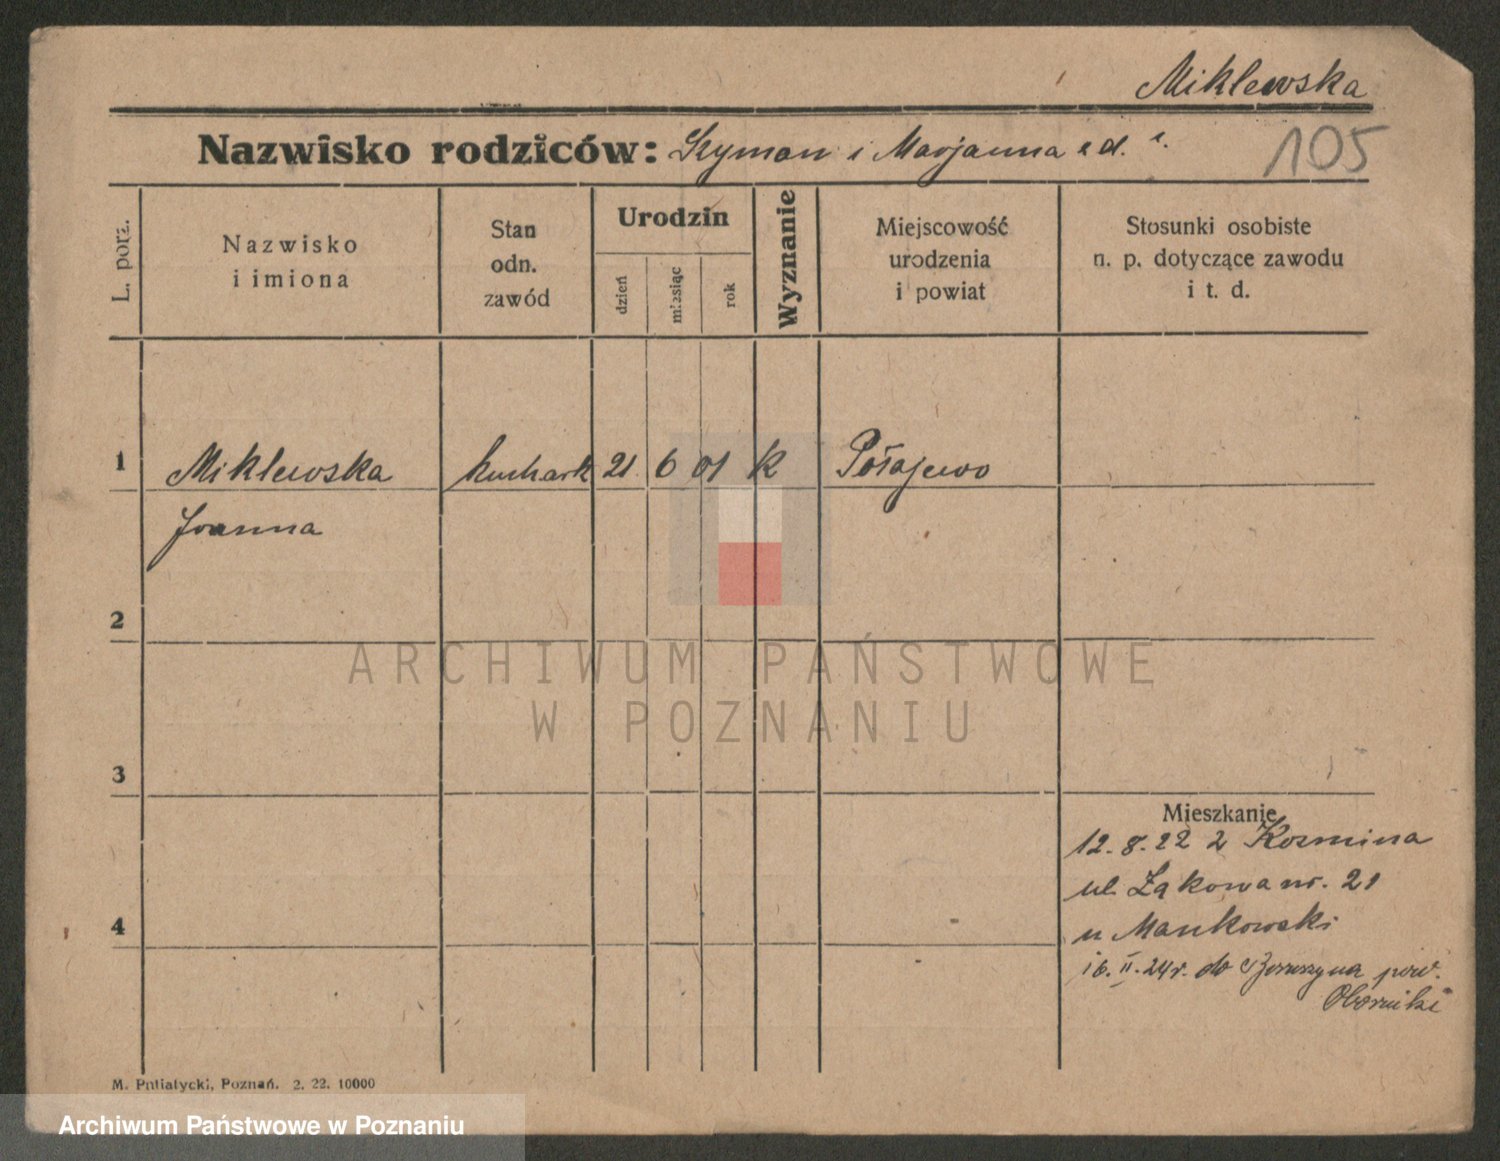 Miklewska
Nazwisko rodziców: Szymon i Marjanna
105
L. porz.
Nazwisko
i imiona
Stan
odn.
zawód
Urodzin
dzień
miesiąc
rok
Wyznanie
Miejscowość
urodzenia
i powiat
Stosunki osobiste
n. p. dotyczące zawodu
i t. d.
1 Miklewska kuchark 21 6 01 k Połajewo
Joanna
2
ARCHIWUM PAŃSTWOWE
W POZNANIU
3
Mieszkanie
12. 8. 22 z Kozmina
ul. Łąkowa nr. 21
4
u Mankowski
16. II. 24 r. do Boruszyna pow.
Oborniki
M. Putiatycki, Poznań. 2. 22. 10000
Archiwum Państwowe w Poznaniu